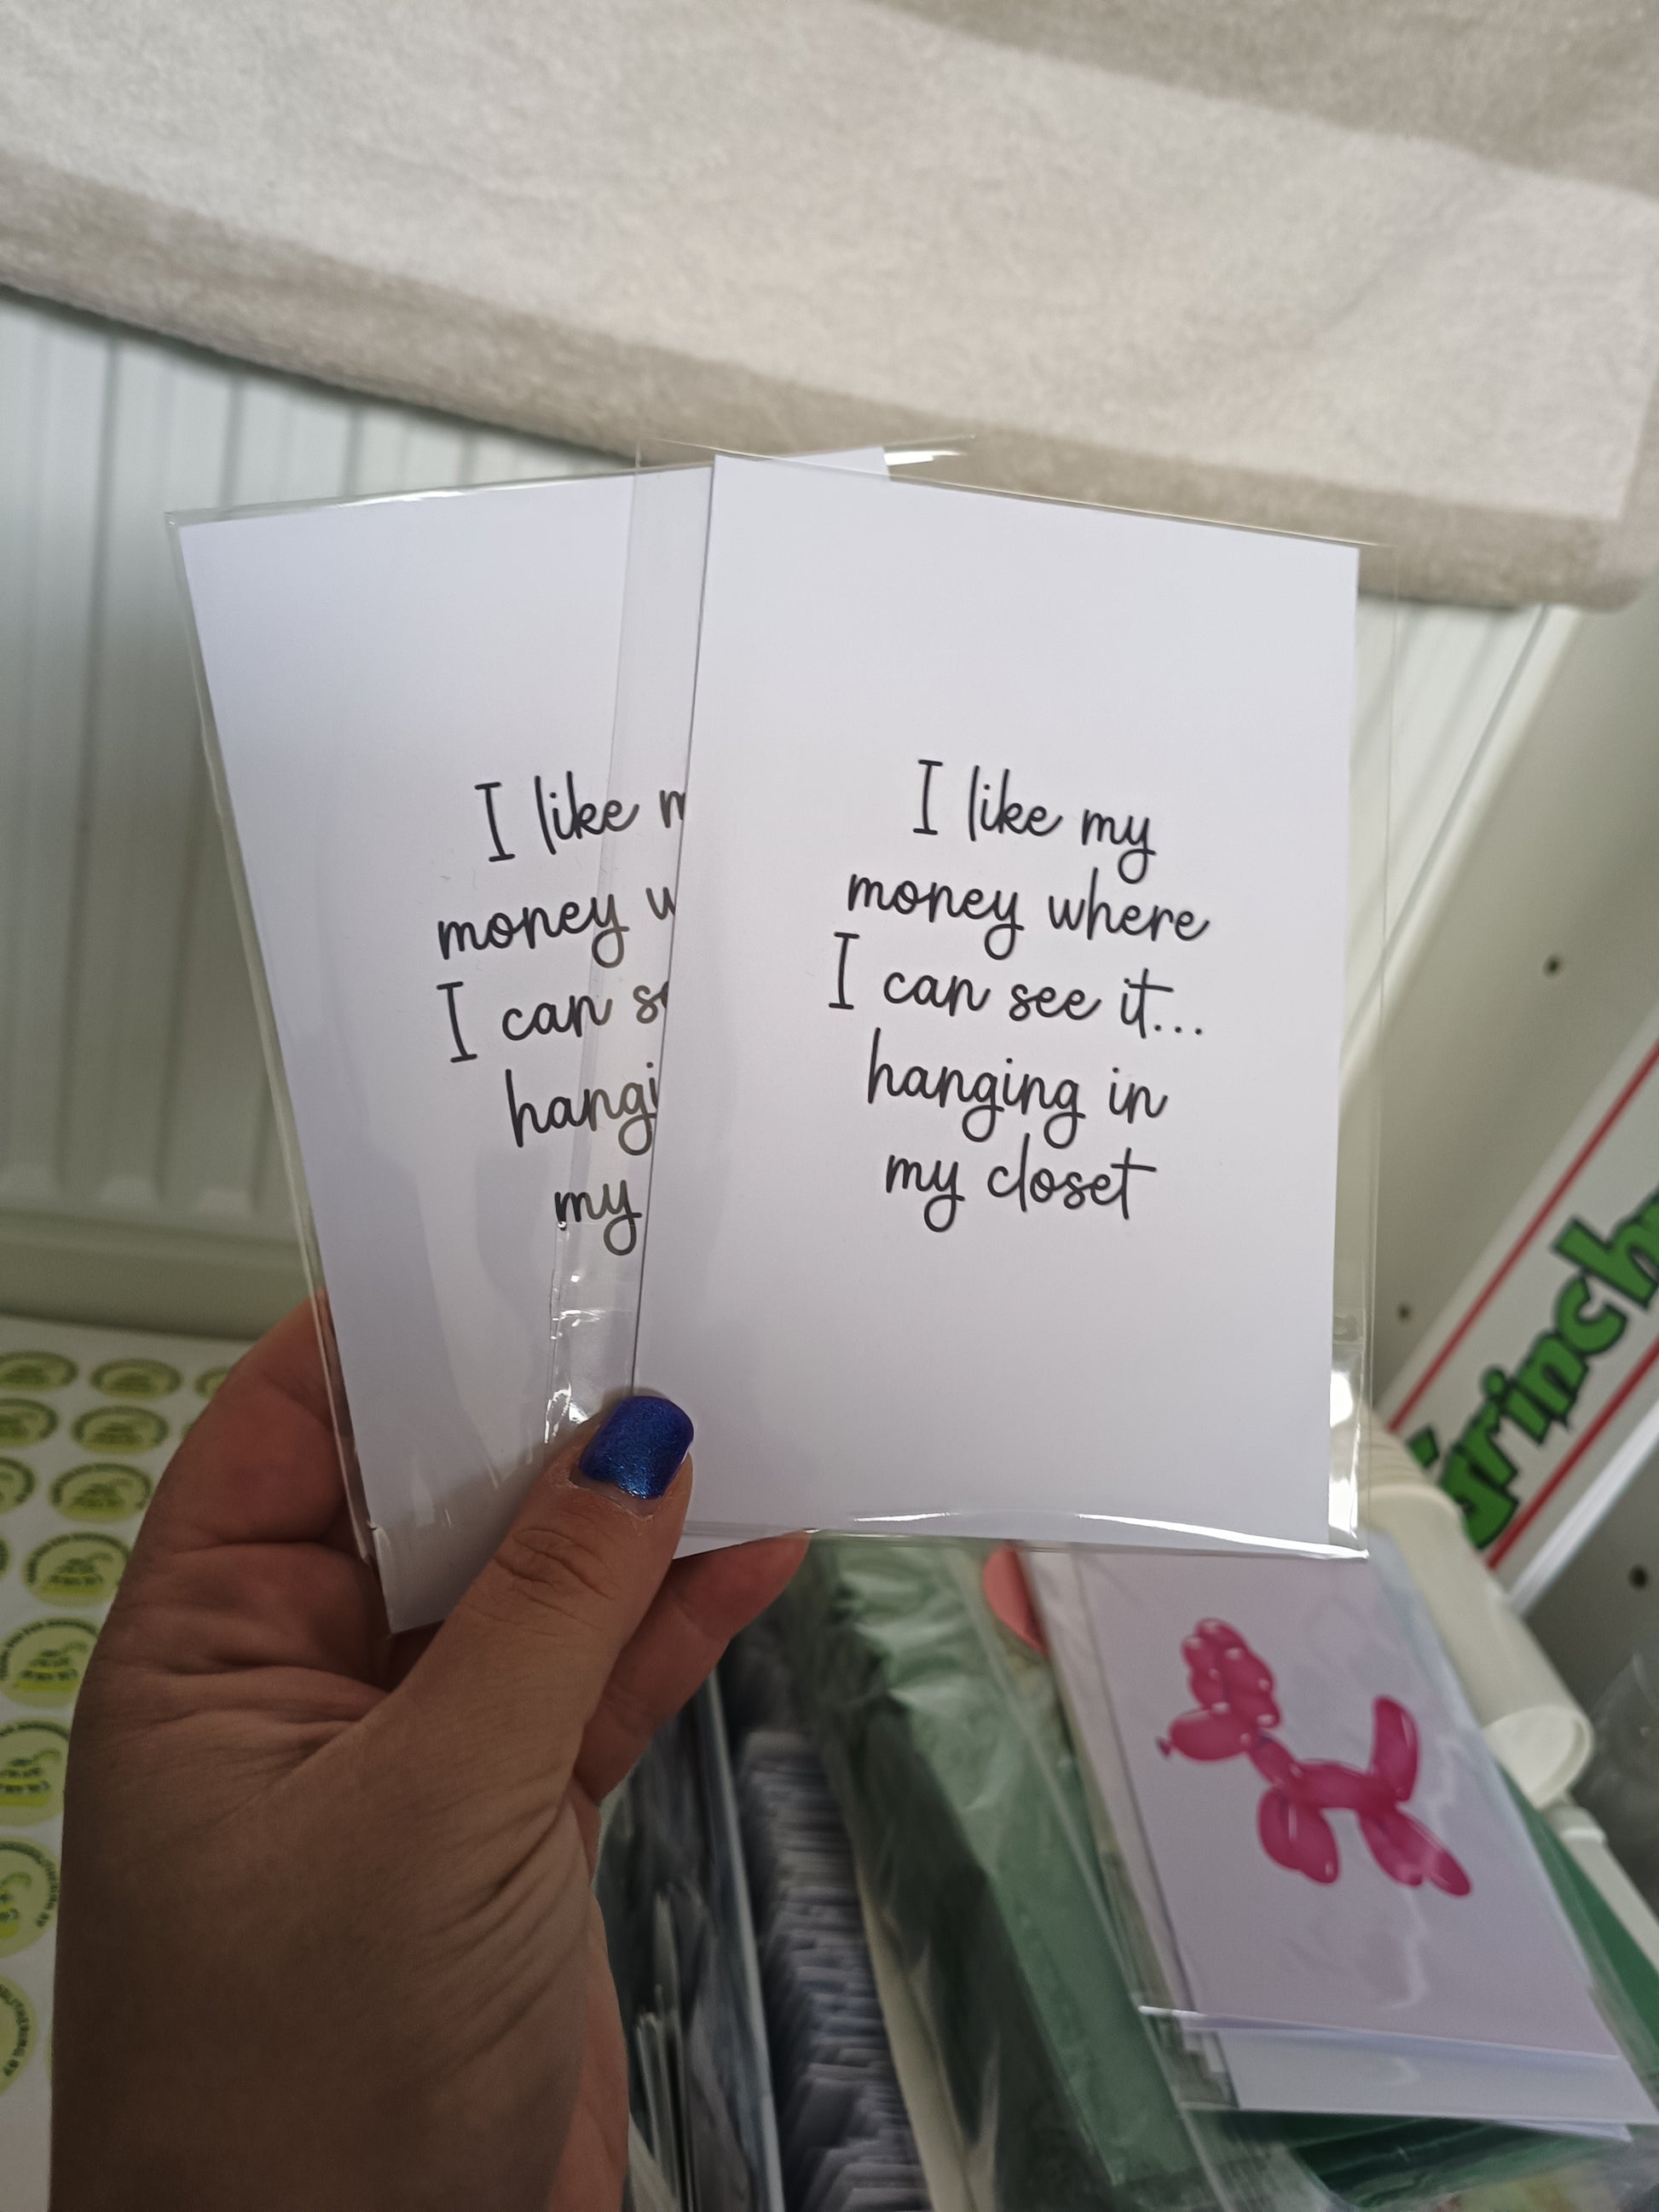 I like m
money w
I can se
hangi
my
I like my
money where
I can see it...
hanging in
my closet
Grinch